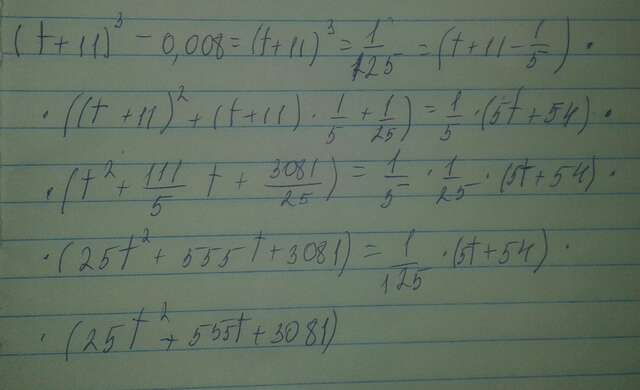 (t+11)³ - 0,008 = (t+11)³ = 1/125 = (t+11 - 1/5) ·
· ((t+11)² + (t+11) · 1/5 + 1/25) = 1/5 · (5t+54) ·
· (t² + 111/5 t + 3081/25) = 1/5 · 1/25 · (5t+54) ·
· (25t² + 555t + 3081) = 1/125 · (5t+54) ·
· (25t² + 555t + 3081)